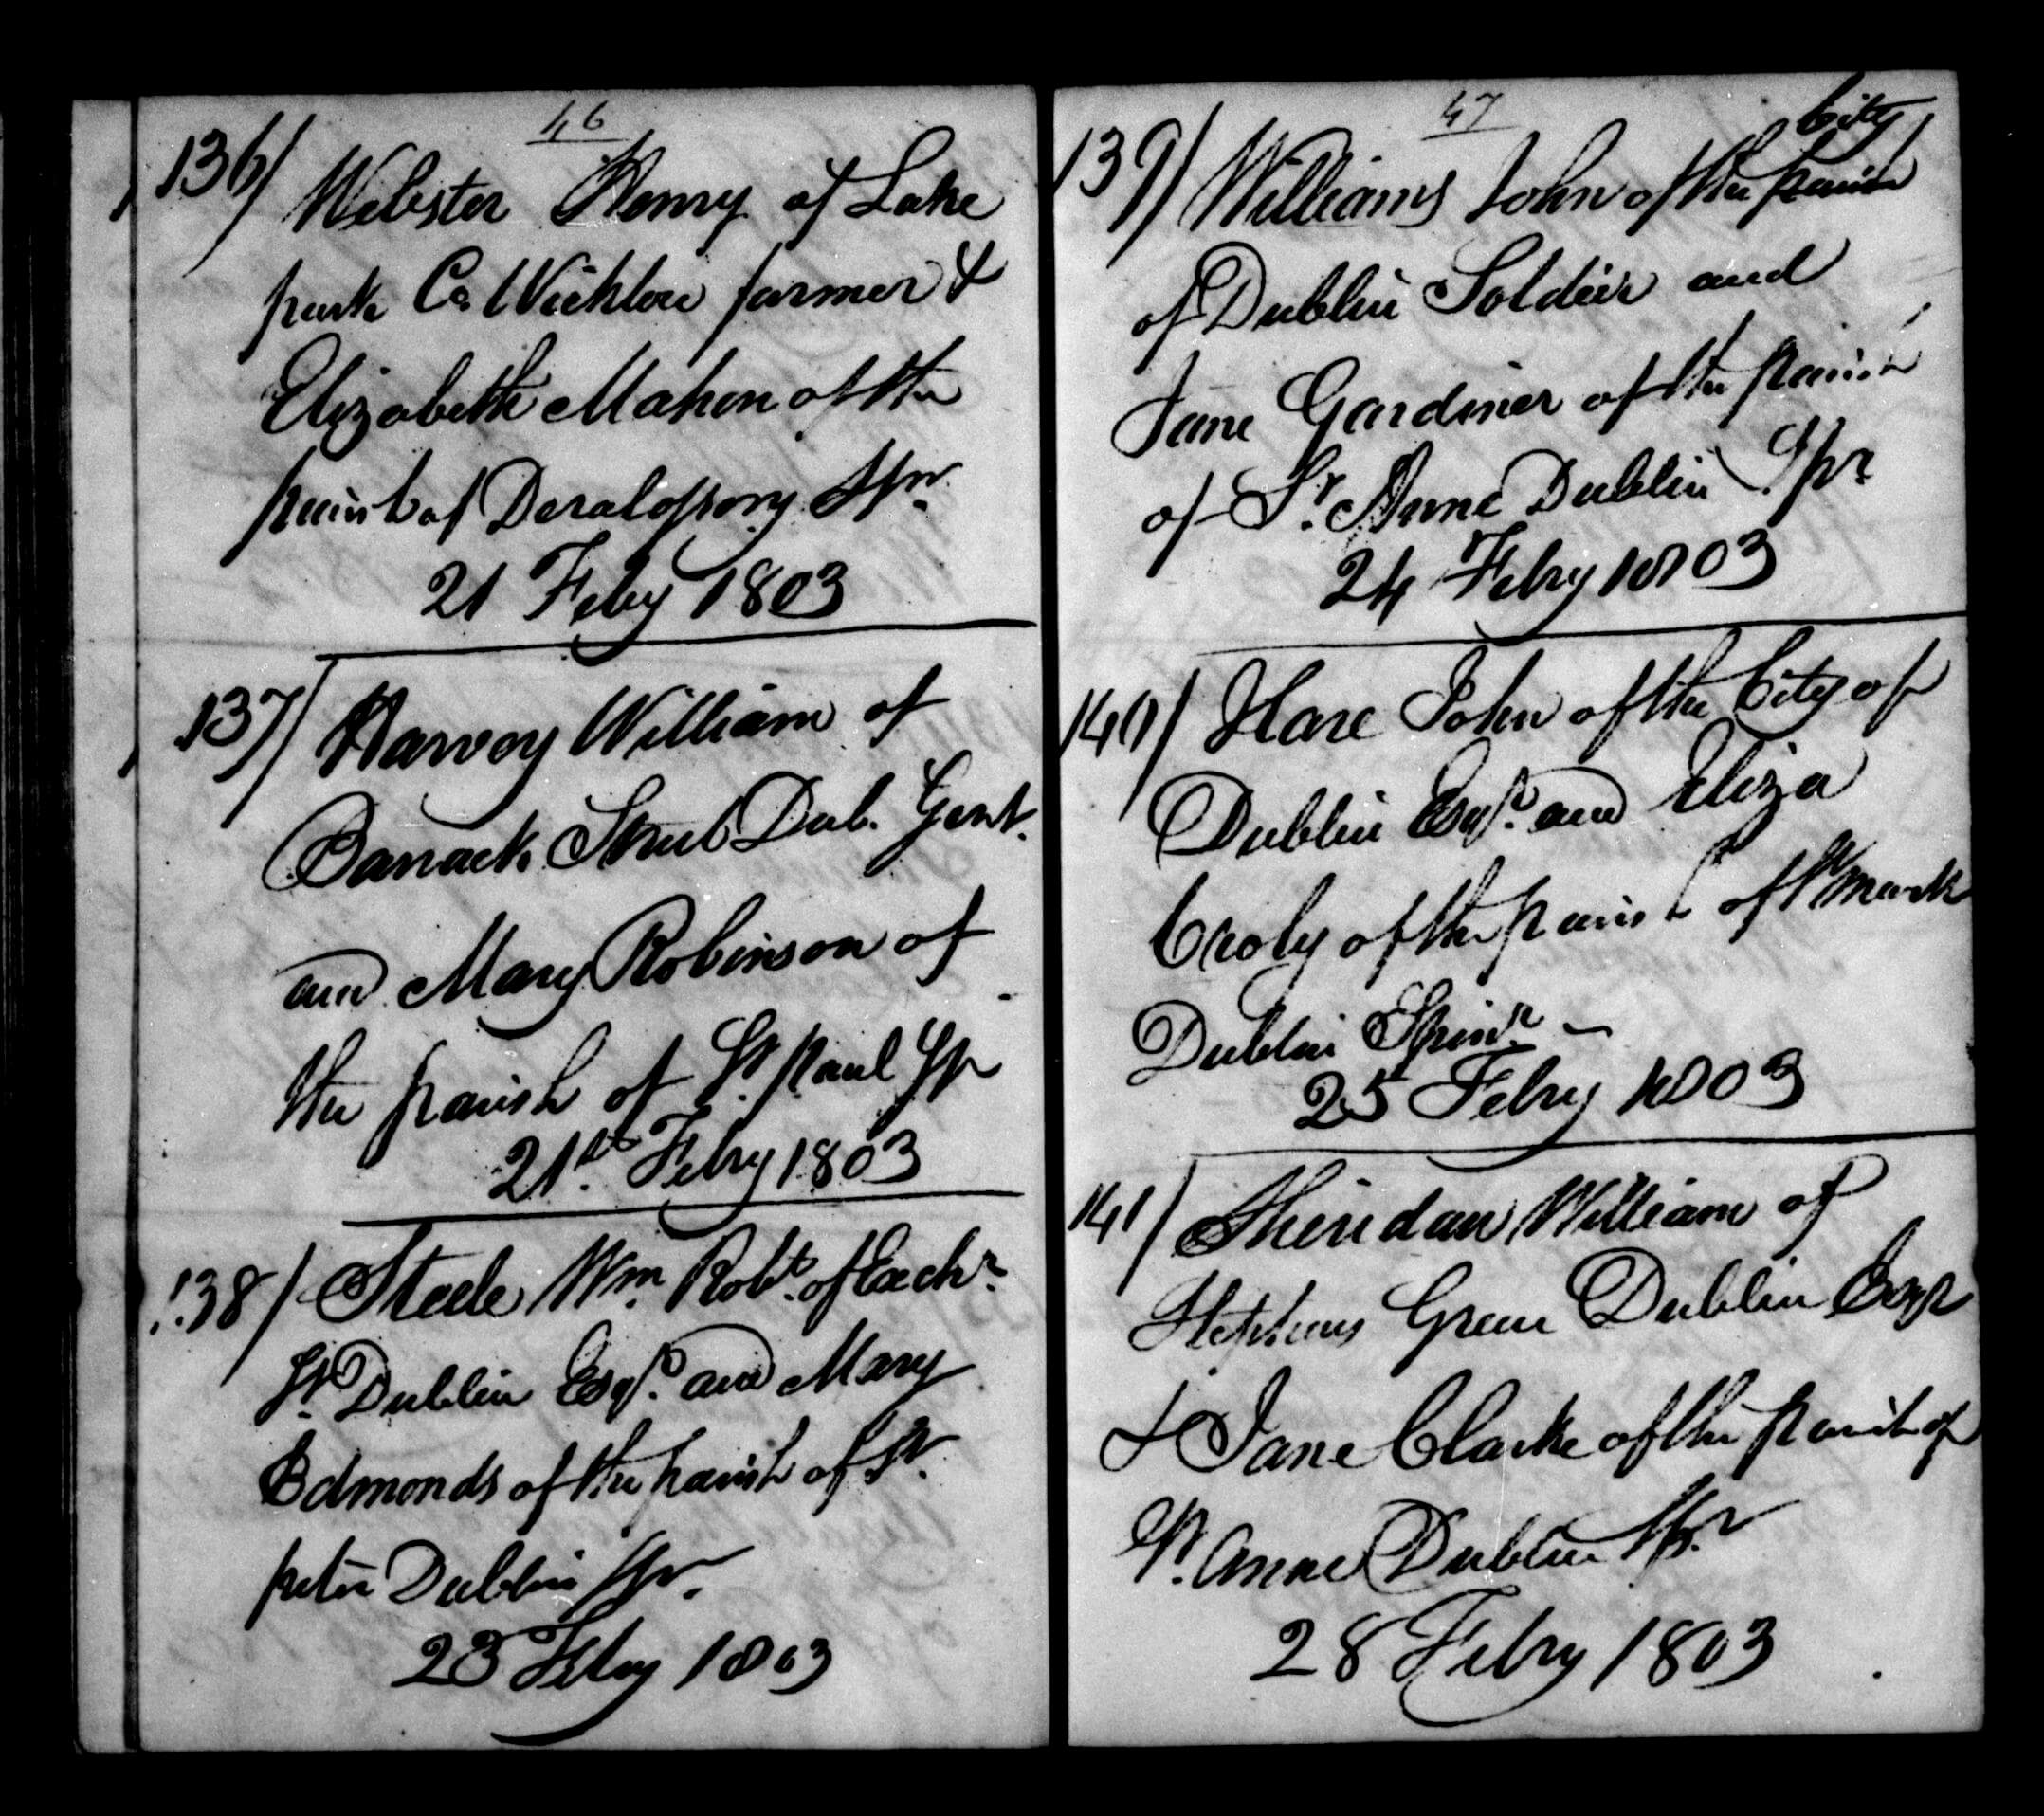 46
136/ Webster Henry of Lake
park Co. Wicklow farmer &
Elizabeth Mahon of the
parish of Deralossory Spr.
21 Feby 1803
137/ Harvey William of
Barrack Street Dub. Gent.
and Mary Robinson of
the parish of St. Paul Spr
21st. Febry 1803
138/ Steele Wm. Robt. of Exchr.
St. Dublin Esqr. and Mary
Edmonds of the parish of St.
peter Dublin Spr.
23 Feby 1803
47
City
139/ Williams John of the parish
of Dublin Soldier and
Jane Gardiner of the parish
of St. Anne Dublin Spr
24 Febry 1803
140/ Hare John of the City of
Dublin Esqr. and Eliza
Croly of the parish of St mark
Dublin Spinr. –
25 Febry 1803
141/ Sheridan William of
Stephens Green Dublin Esqr
& Jane Clarke of the parish of
St. Anne Dublin Spr.
28 Febry 1803